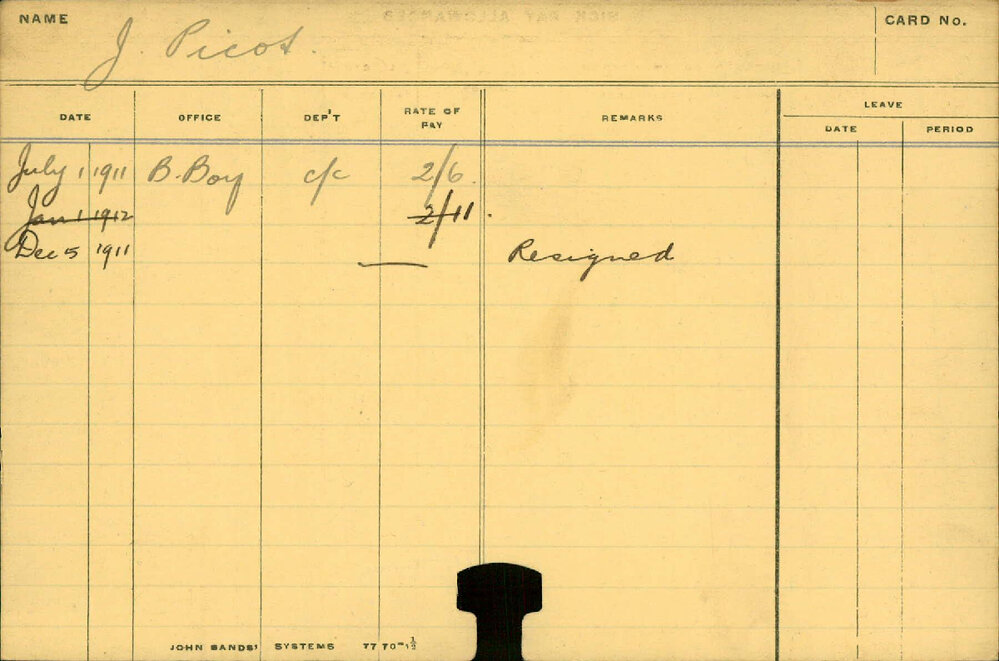 NAME J. Picot. CARD No.
DATE OFFICE DEP'T RATE OF PAY REMARKS LEAVE
DATE PERIOD
July 1 1911 B. Boy c/c 2/6.
Jan 1 1912 2/11.
Dec 5 1911 — Resigned
JOHN SANDS' SYSTEMS 7770